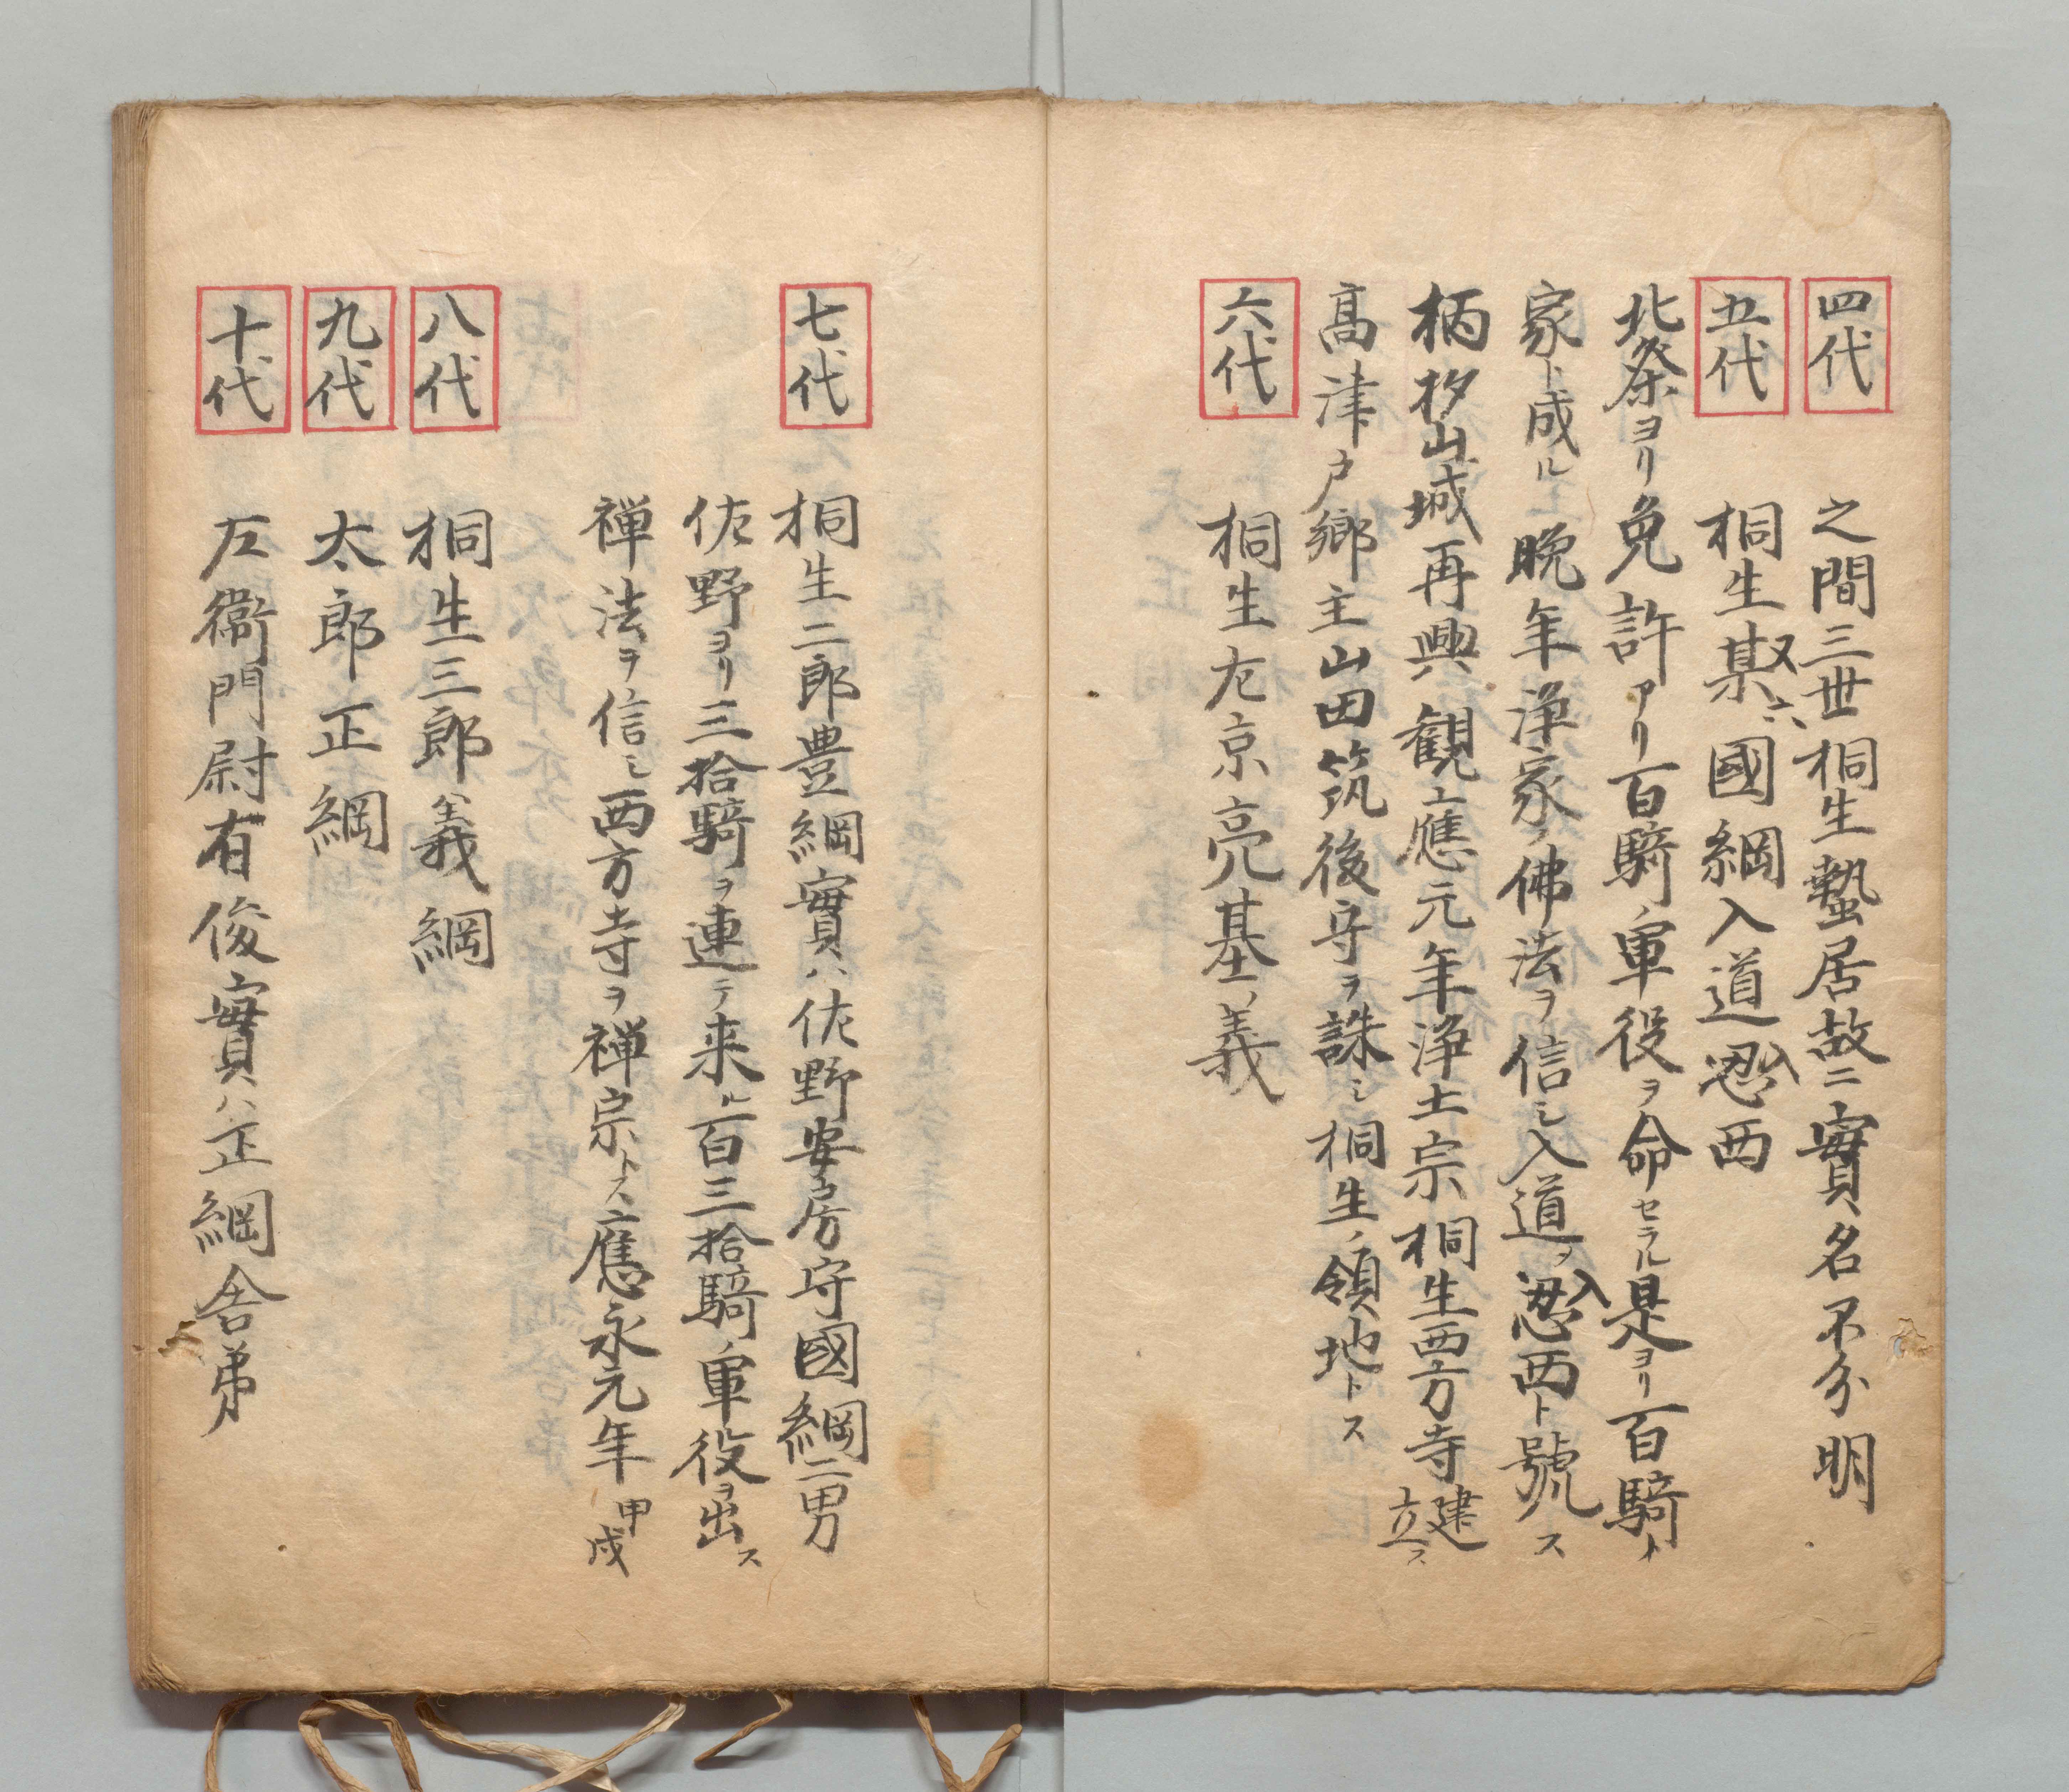 四代 之間三世桐生蟄居故ニ實名不分明
五代 桐生某又六國綱入道忍西
北条ヨリ免許アリ百騎ノ軍役ヲ命セラル是ヨリ百騎ト
家ト成ル晩年浄家ノ佛法ヲ信シ入道ヲ忍西ト號ス
柄杓山城再興観應元年浄土宗桐生西方寺建立ス
髙津戸郷主山田筑後守ヲ誅シ桐生ノ領地トス
六代 桐生左京亮基義
七代 桐生二郎豊綱實ハ佐野安房守國綱二男
佐野ヨリ三拾騎ヲ連テ来ル百三拾騎ノ軍役ヲ出ス
禅法ヲ信シ西方寺ヲ禅宗トス應永元年甲戌
八代 桐生三郎義綱
九代 太郎正綱
十代 左衞門尉有俊實ハ正綱舎弟